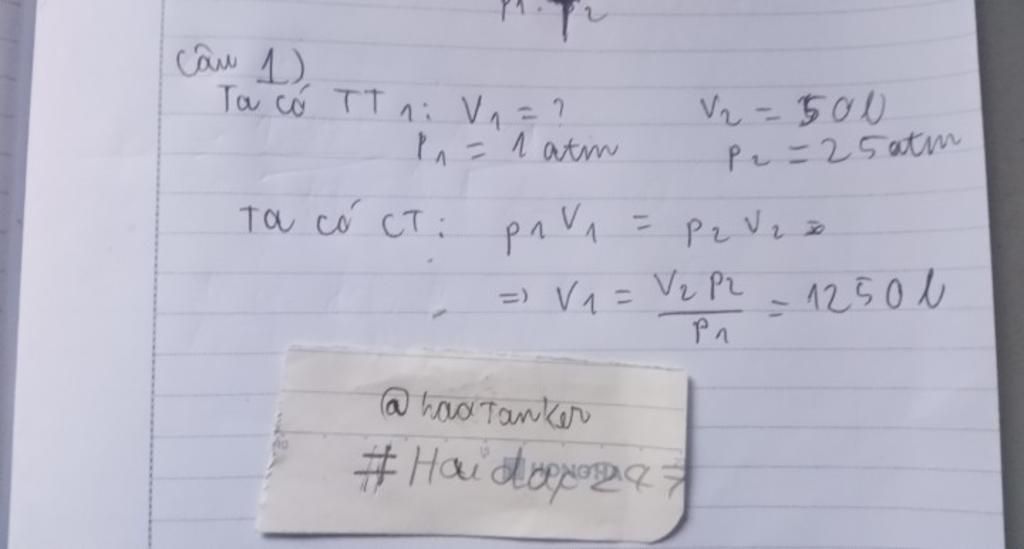 p1. p2
Câu 1)
Ta có TT 1: V1 = ? V2 = 50 l
P1 = 1 atm P2 = 25 atm
Ta có CT: p1 V1 = p2 V2
=> V1 = V2 P2 / P1 = 1250 l
@haxTanker